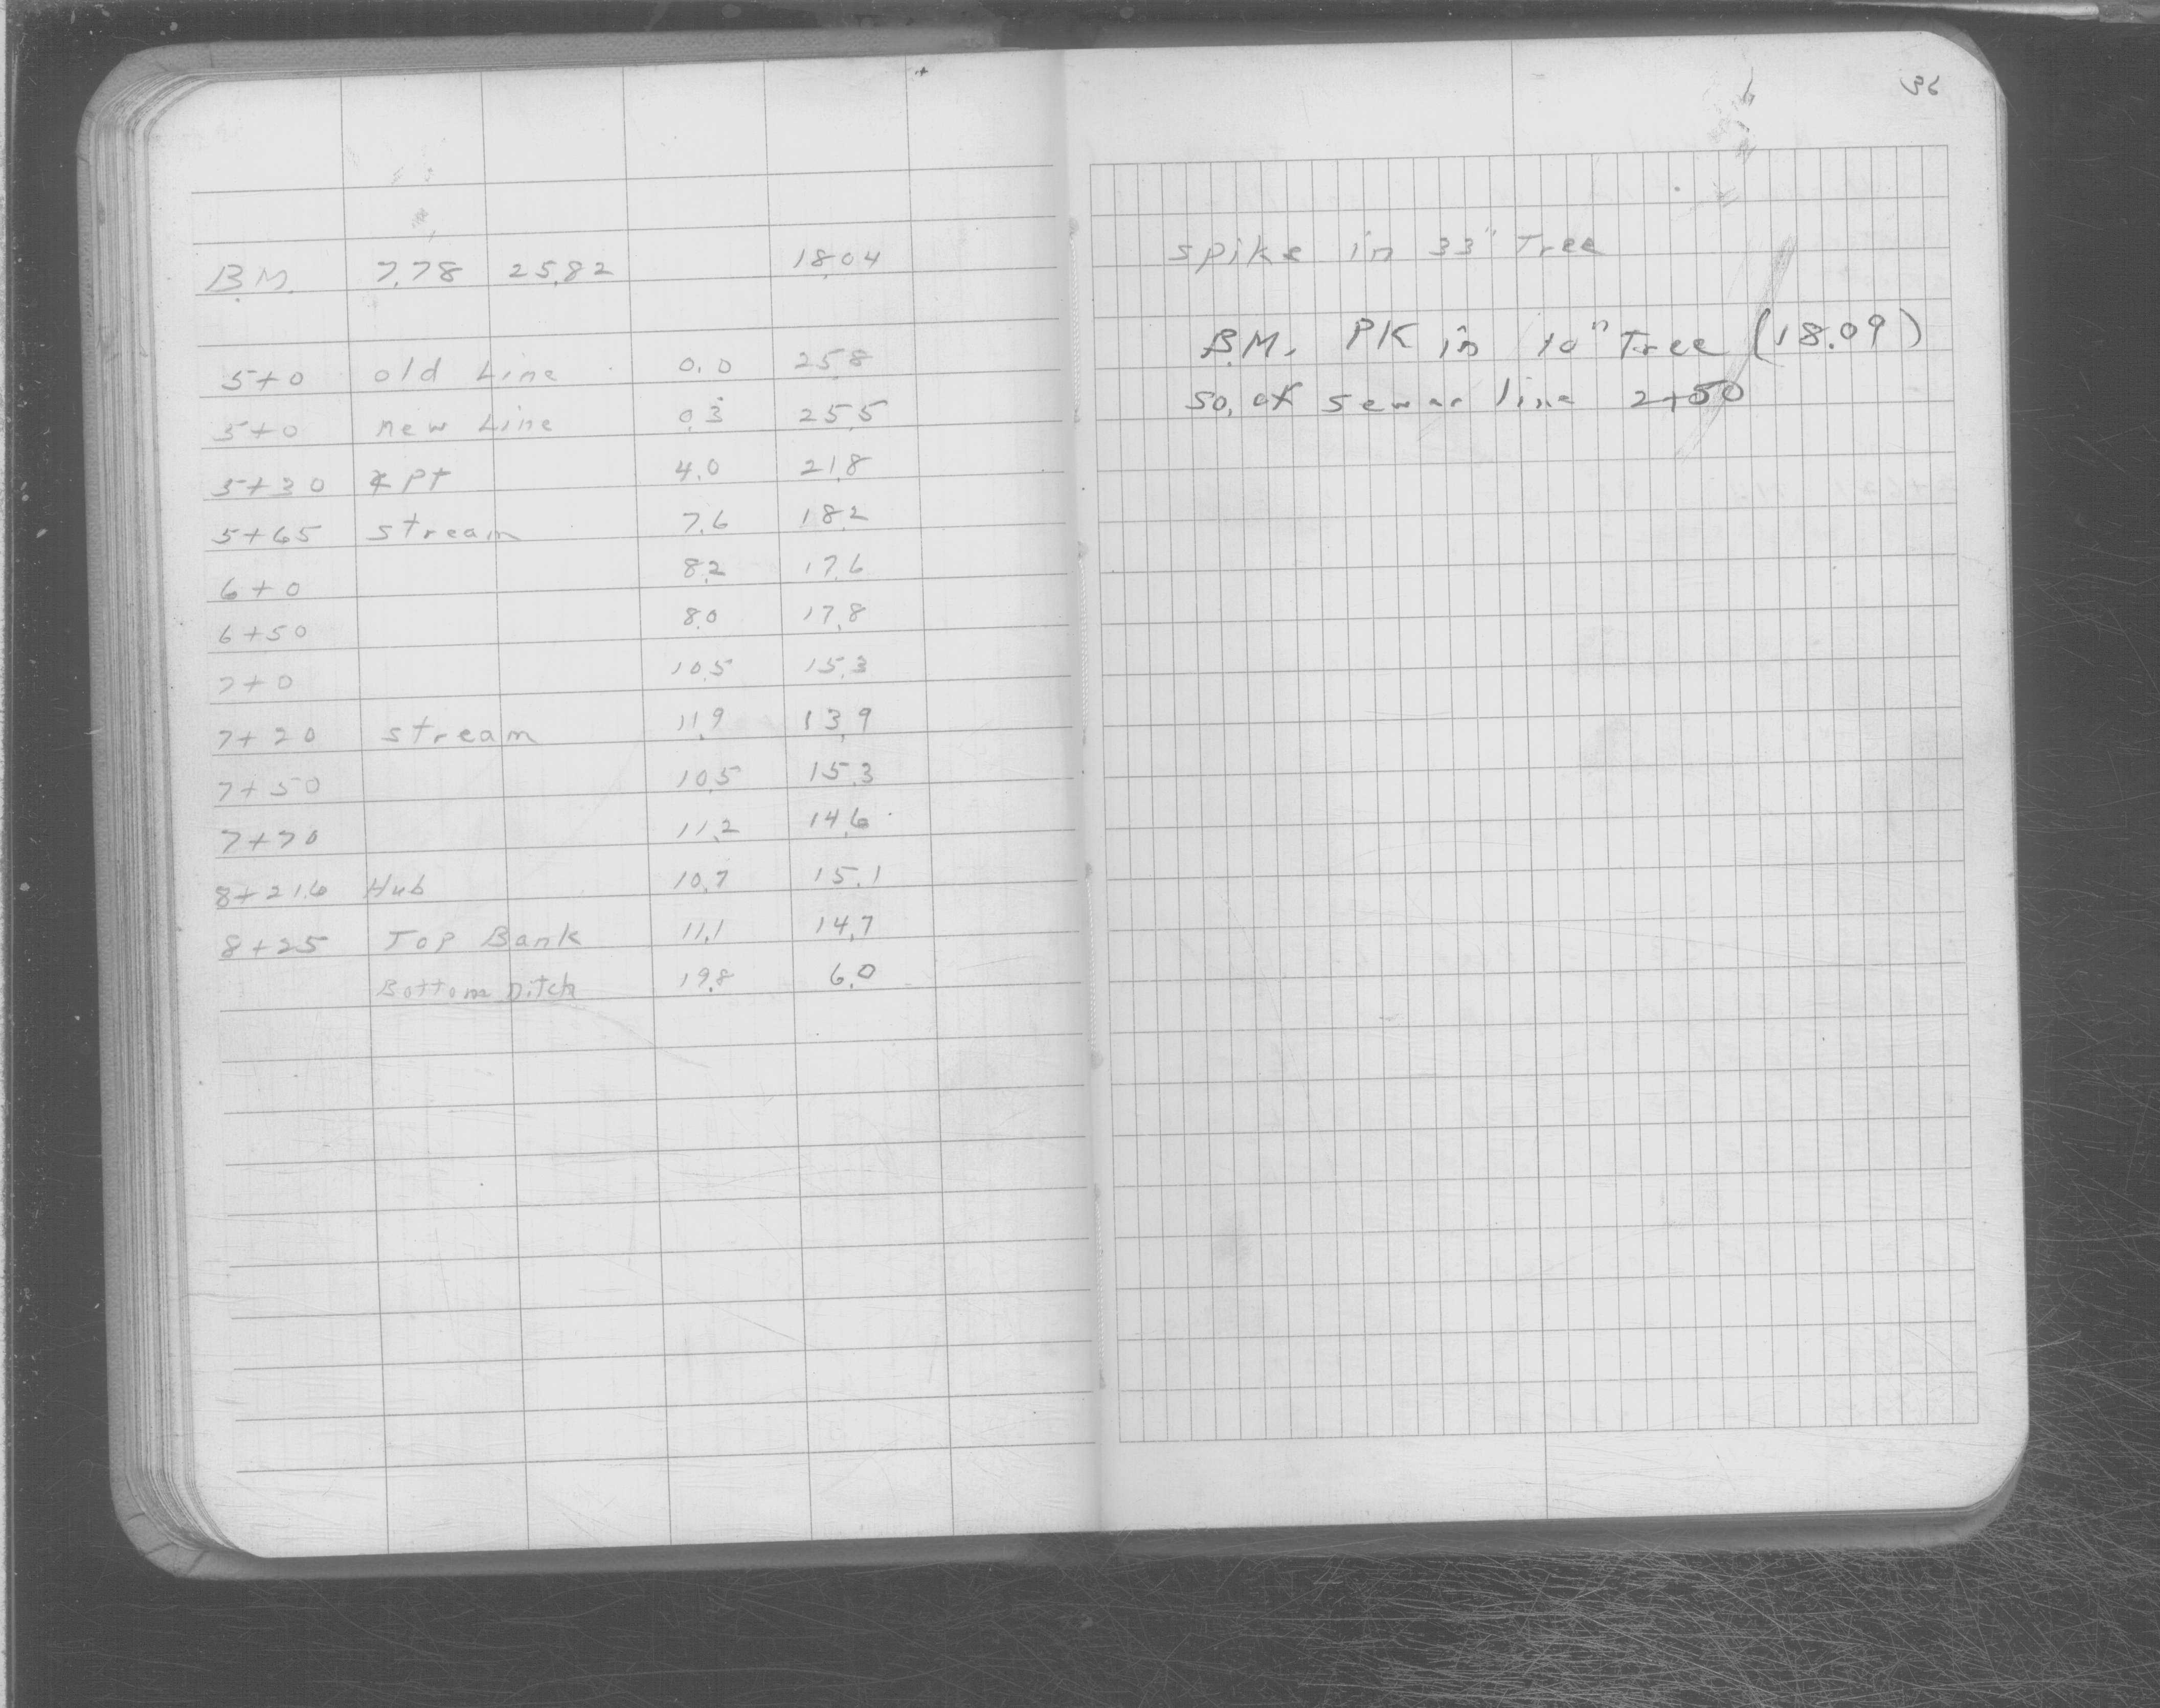 B.M. 7.78 25.82 18.04
5+0 old Line 0.0 25.8
5+0 new Line 0.3 25.5
5+30 ⦣ pt 4.0 21.8
5+65 stream 7.6 18.2
6+0 8.2 17.6
6+50 8.0 17.8
7+0 10.5 15.3
7+20 stream 11.9 13.9
7+50 10.5 15.3
7+70 11.2 14.6
8+21.6 Hub 10.7 15.1
8+25 Top Bank 11.1 14.7
Bottom Ditch 19.8 6.0
36
spike in 33" Tree
B.M. PK in 10" Tree (18.09)
So. of sewer line 2+50